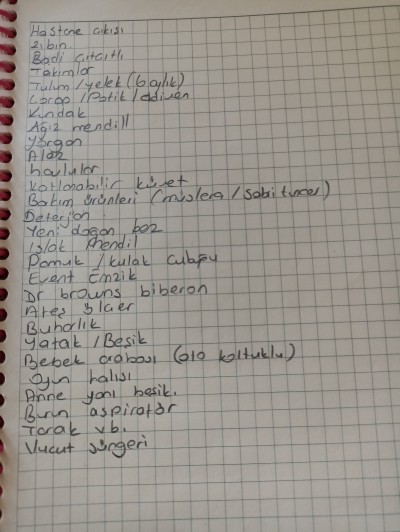 Hastane çıkışı
Zıbın
Badi çıtçıtlı
Takımlar
Tulum / yelek (6 aylık)
Çorap / Patik / eldiven
Kundak
Ağız mendili
Yorgan
havlular
Katlanabilir küvet
Bakım ürünleri (mustela /
Deterjan
Yeni doğan bez
Islak mendil
Pamuk / kulak çubğu
Event Emzik
Dr browns biberon
Ateş ölçer
Buharlık
Yatak / Beşik
Bebek arabası (oto koltuklu)
Oyun halısı
Anne yanı beşik.
Burun aspiratör
Tarak vb.
Vücut süngeri